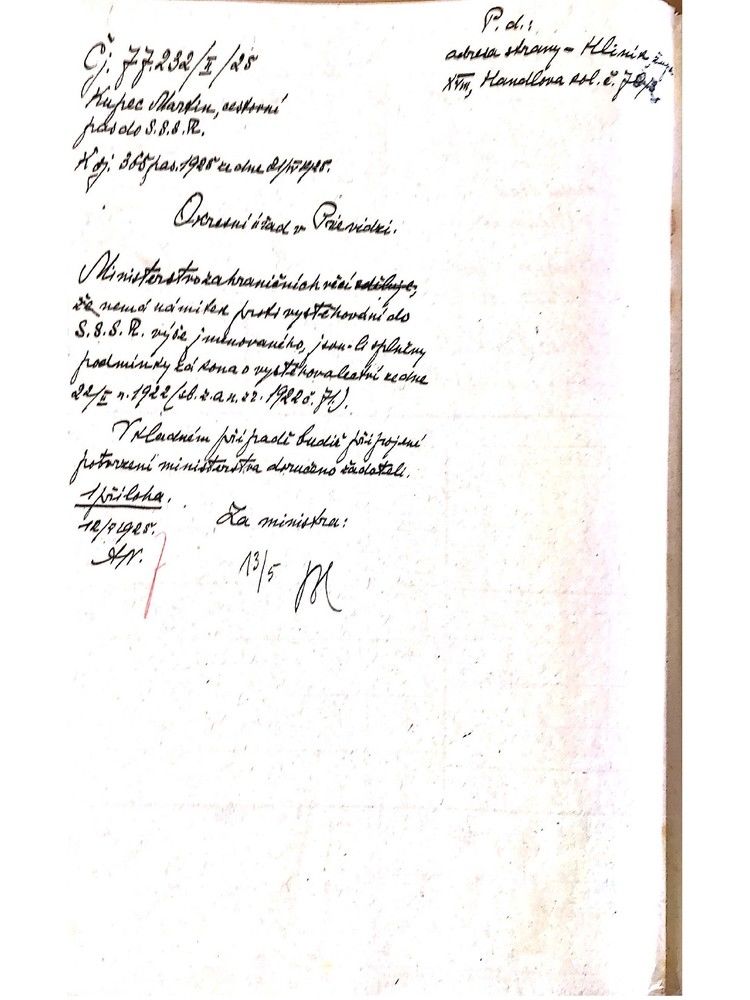 P. d.:
adresa strany – Hliník,
XVIII, Handlova kol. č.
Čj. 77.232/II/25
Kupec Martin, cestovní
pas do S.S.S.R.
K čj. 365 pas. 1925 ze dne 21/IV 1925.
Okresní úřad v Prievidzi.
Ministerstvo zahraničních věcí sděluje,
že nemá námitek proti vystěhování do
S.S.S.R. výše jmenovaného, jsou-li splněny
podmínky zákona o vystěhovalectví ze dne
22/II r. 1922 (sb. z. a n. z r. 1922 č. 71.).
V kladném případě budiž připojené
potvrzení ministerstva doručeno žadateli.
1 příloha.
12/V 1925.
Za ministra:
AN.
13/5